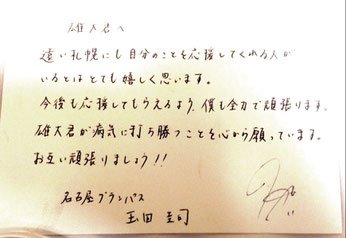 雄大君へ
遠い札幌にも自分のことを応援してくれる人が
いるとはとても嬉しく思います。
今後も応援してもらえるよう、僕も全力で頑張ります。
雄大君が病気に打ち勝つことを心から願っています。
お互い頑張りましょう!!
名古屋グランパス
玉田圭司